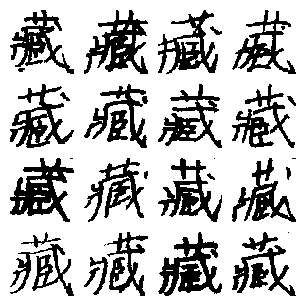 藏藏藏藏
藏藏藏藏
藏藏藏藏
藏藏藏藏